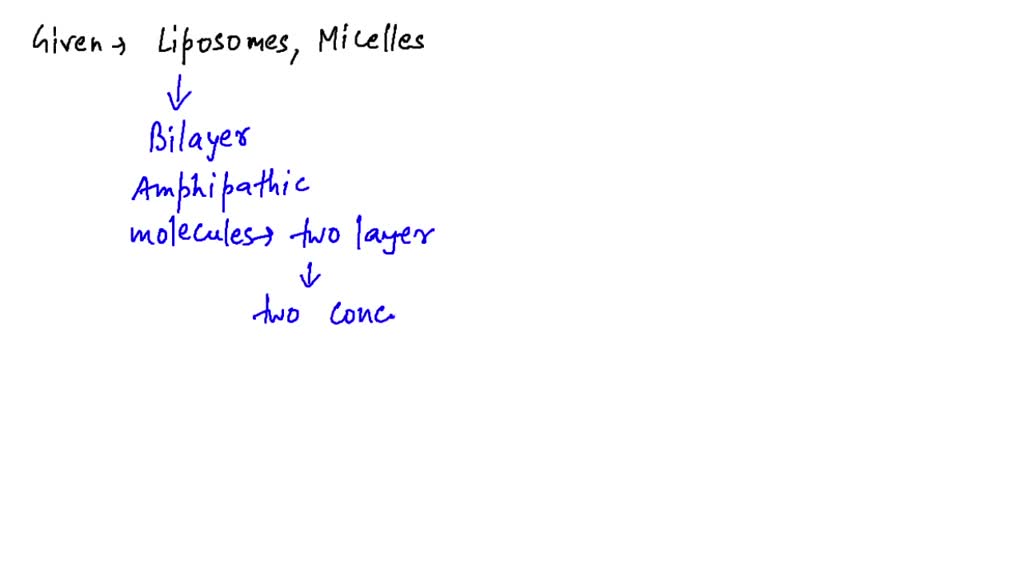 Given → Liposomes, Micelles
↓
Bilayer
Amphipathic
molecules → two layer
↓
two conc